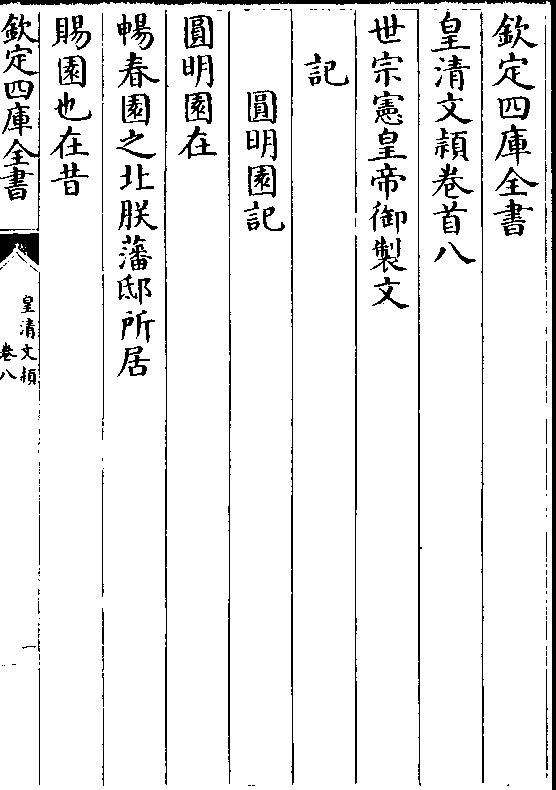 欽定四庫全書
皇清文穎卷首八
世宗憲皇帝御製文
記
圓明園記
圓明園在
暢春園之北朕藩邸所居
賜園也在昔
欽定四庫全書
皇清文穎
卷八
一